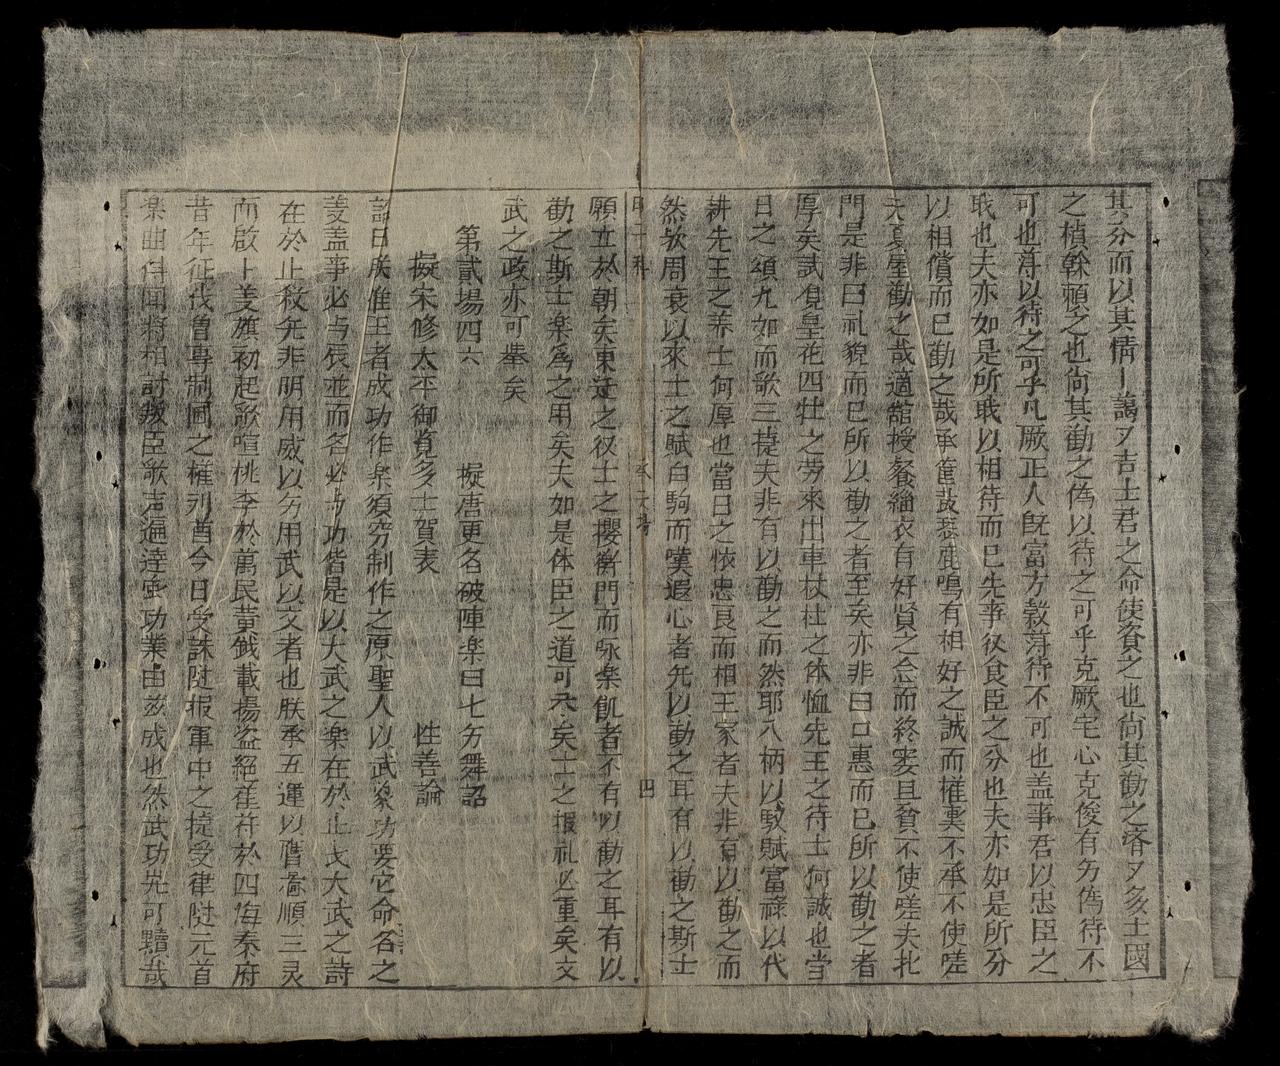 其分而以其情〡藹ヌ吉士君之命使資之也尚其勸之濟ヌ多士國
之楨幹頼之也尚其勸之偽以待之可乎克厥宅心克俊有为偽待不
可也薄以待之可乎凡厥正人旣富方穀薄待不可也盖事君以忠臣之
戝也夫亦如是所戝以相待而已先事後食臣之分也夫亦如是所分
以相償而已勸之哉承筐鼓瑟鹿鳴有相好之誠而權裏不承不使嗟
夫夏屋勸之哉適舘授餐緇衣有好賢之念而終窭且貧不使嗟夫北
門是非曰礼貌而已所以勸之者至矣亦非曰口惠而已所以勸之者
厚矣試覌皇花四牡之劳來出車杕杜之体恤先王之待士何誠也当
日之頌九如而歌三捷夫非有以勸之而然耶八柄以馭賦富祿以代
耕先王之养士何厚也當日之懷忠良而相王家者夫非有以勸之而
然欤周衰以來士之賦白駒而嘆遐心者先以勸之耳有以勸之斯士
四
願立於朝矣東迁之後士之櫻衡門而咏樂飢者不有以勸之耳有以
勸之斯士楽爲之用矣夫如是体臣之道可尽矣士之报礼必重矣文
武之政亦可举矣
第貳場四六 擬唐更名破陣楽曰七为舞詔
擬宋修太平御覧多士賀表 性善論
詔曰朕惟王者成功作楽須究制作之原聖人以武象功要它命名之
羙盖事必与辰並而名必与功偕是以大武之楽在於止戈大武之詩
在於止殺先非明用威以为用武以文者也朕承五運以膺啚順三灵
而啟卜羙旗初起歌喧桃李於萬民黄鉞載揚盗絕萑苻於四海秦府
昔年征伐曽專制閫之權列酋今日受誅陡报軍中之捷受律陡元首
楽曲伴闻将相討叛臣歌声遍逹強功業由兹成也然武功先可黷哉